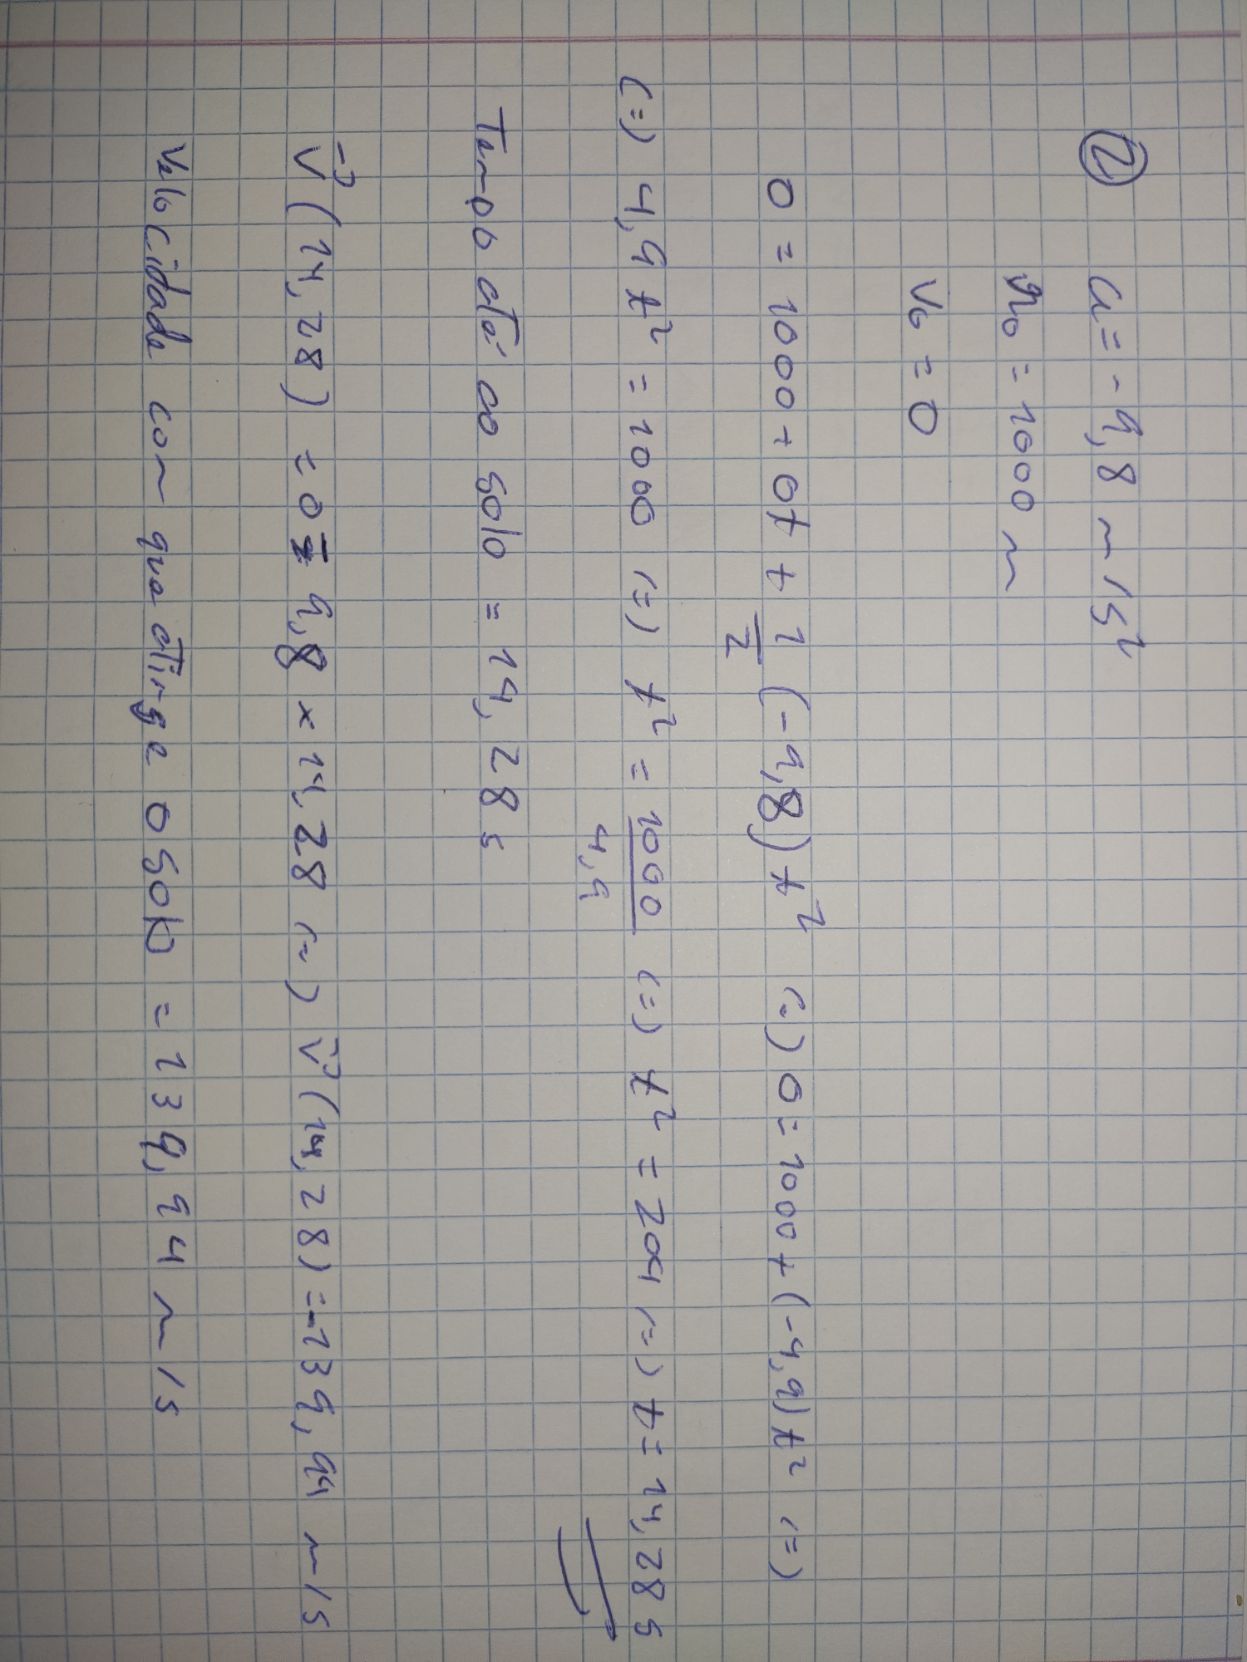 ② a = -9,8 m/s²
r₀ = 1000 m
v₀ = 0
0 = 1000 + 0t + 1/2 (-9,8) t² (=) 0 = 1000 + (-4,9) t² (=)
(=) 4,9 t² = 1000 (=) t² = 1000/4,9 (=) t² = 204 (=) t = 14,28 s
Tempo até ao solo = 14,28 s
v⃗ (14,28) = 0 - 9,8 × 14,28 (=) v⃗ (14,28) = -139,94 m/s
Velocidade com que atinge o solo = 139,94 m/s